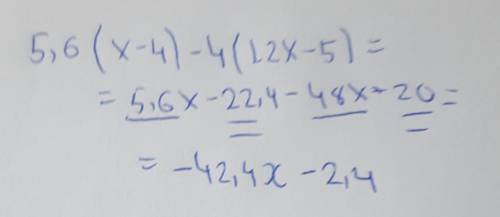 5,6(x-4)-4(12x-5)=
= 5,6x-22,4-48x+20=
= -42,4x-2,4